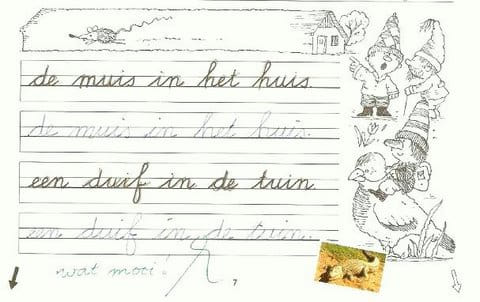 de muis in het huis.
de muis in het huis.
een duif in de tuin.
een duif in de tuin.
wat mooi!
7